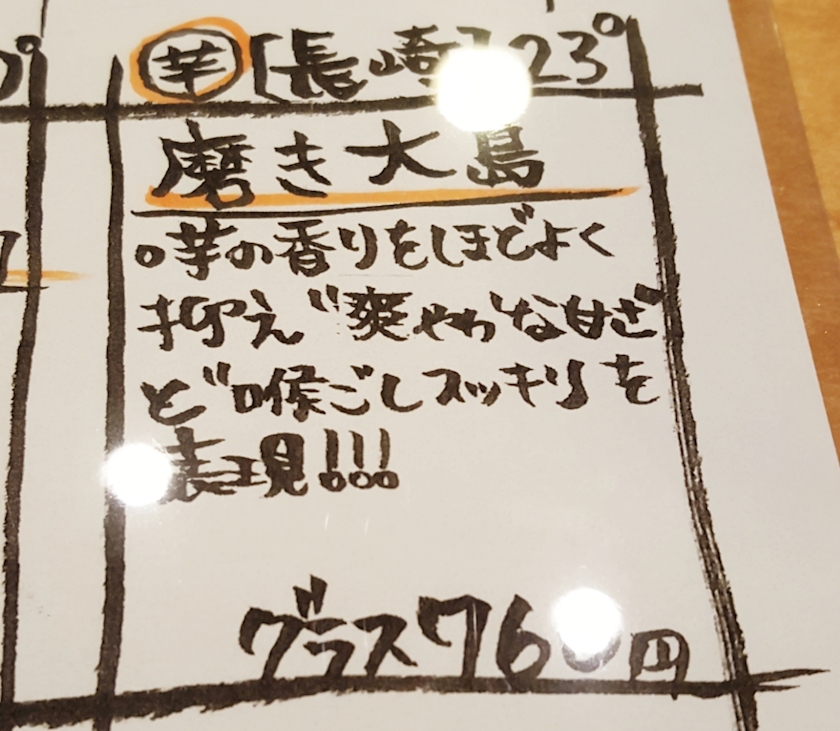 芋 [長崎] 23°
磨き大島
○芋の香りをほどよく
抑え"爽やかな甘さ"
と"喉ごしスッキリ"を
表現!!!
グラス760円